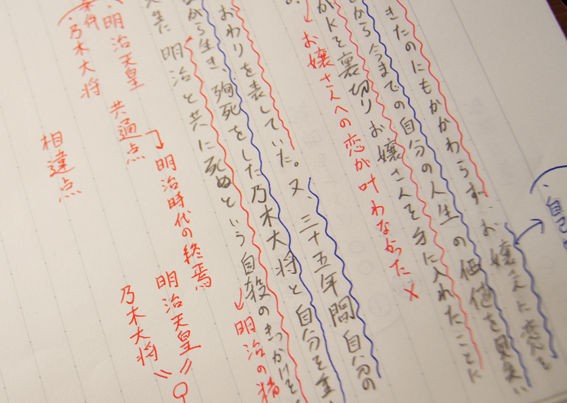 自己
お嬢さんに恋を
きたのにもかかわらず、
から今までの自分の人生の価値を見
がKを裏切りお嬢さんを手に入れたことに
→お嬢さんへの恋が叶わなかった×
おわりを表していた。又、三十五年間自分の
がら生き、殉死をした乃木大将と自分を重
また 明治と共に死ぬという自殺のきっかけを
→明治の精
・明治天皇 共通点
→明治時代の終焉
・乃木大将
明治天皇=
相違点
乃木大将=